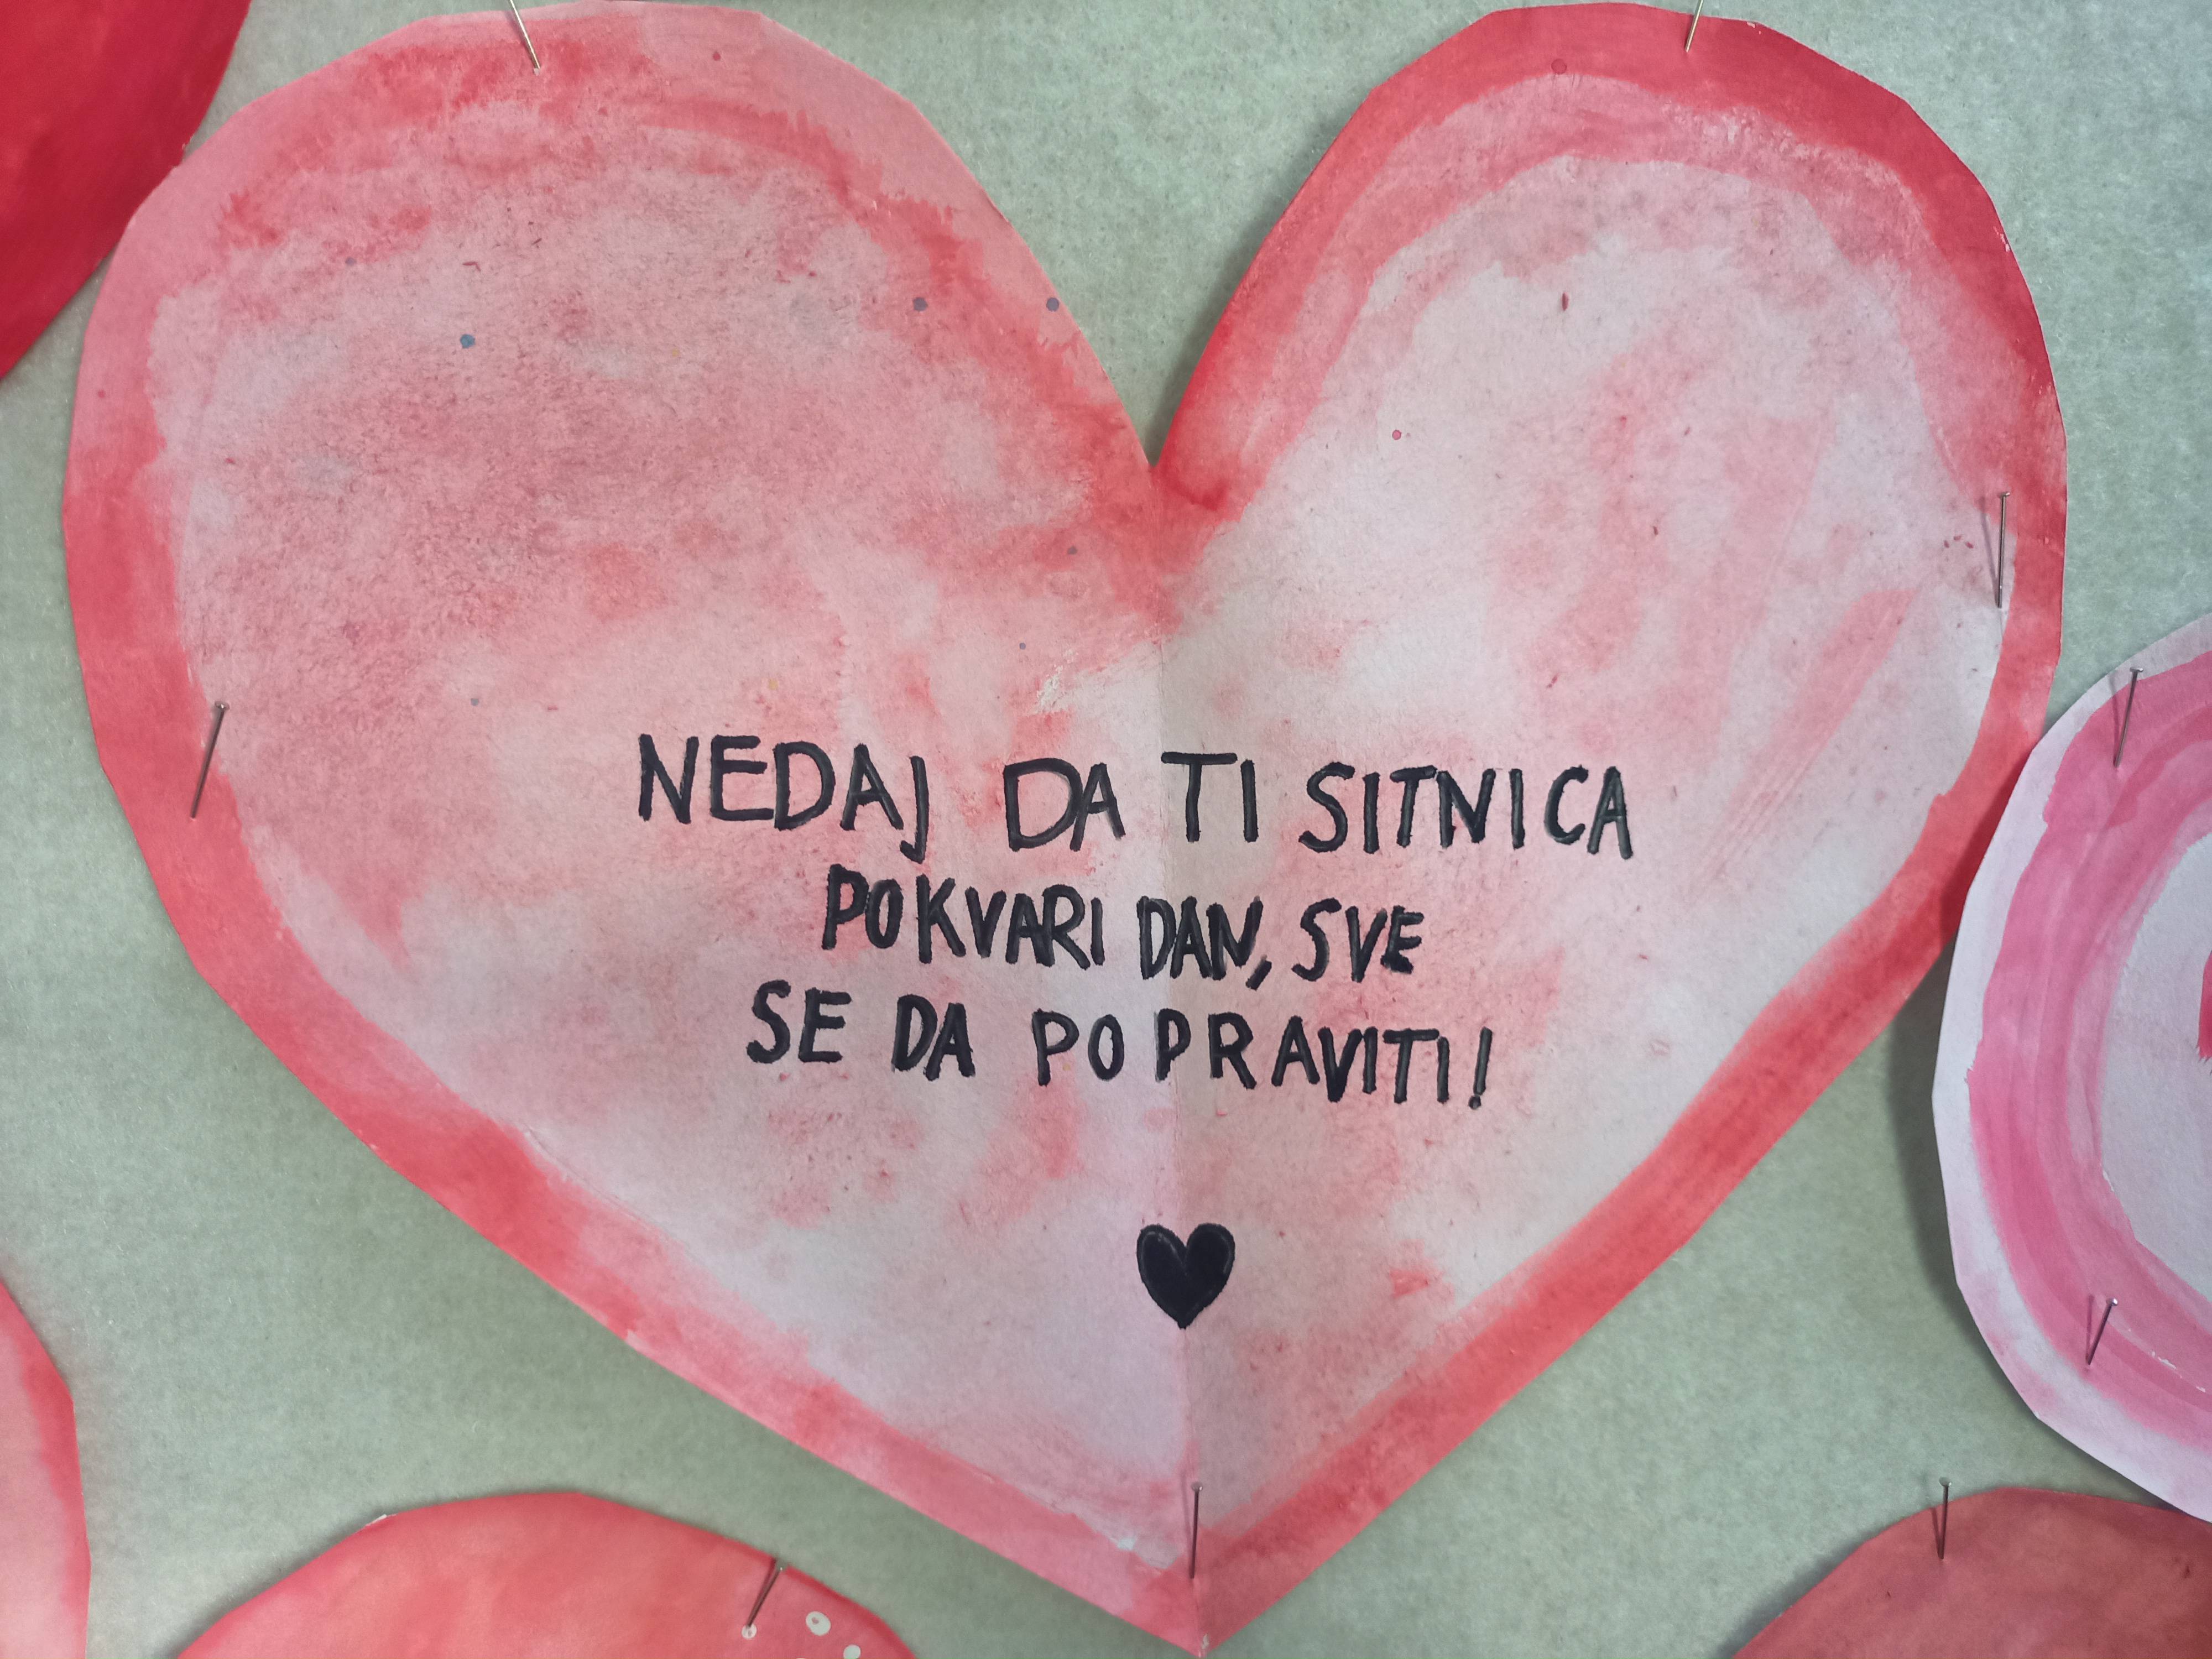 NEDAJ DA TI SITNICA
POKVARI DAN, SVE
SE DA POPRAVITI!